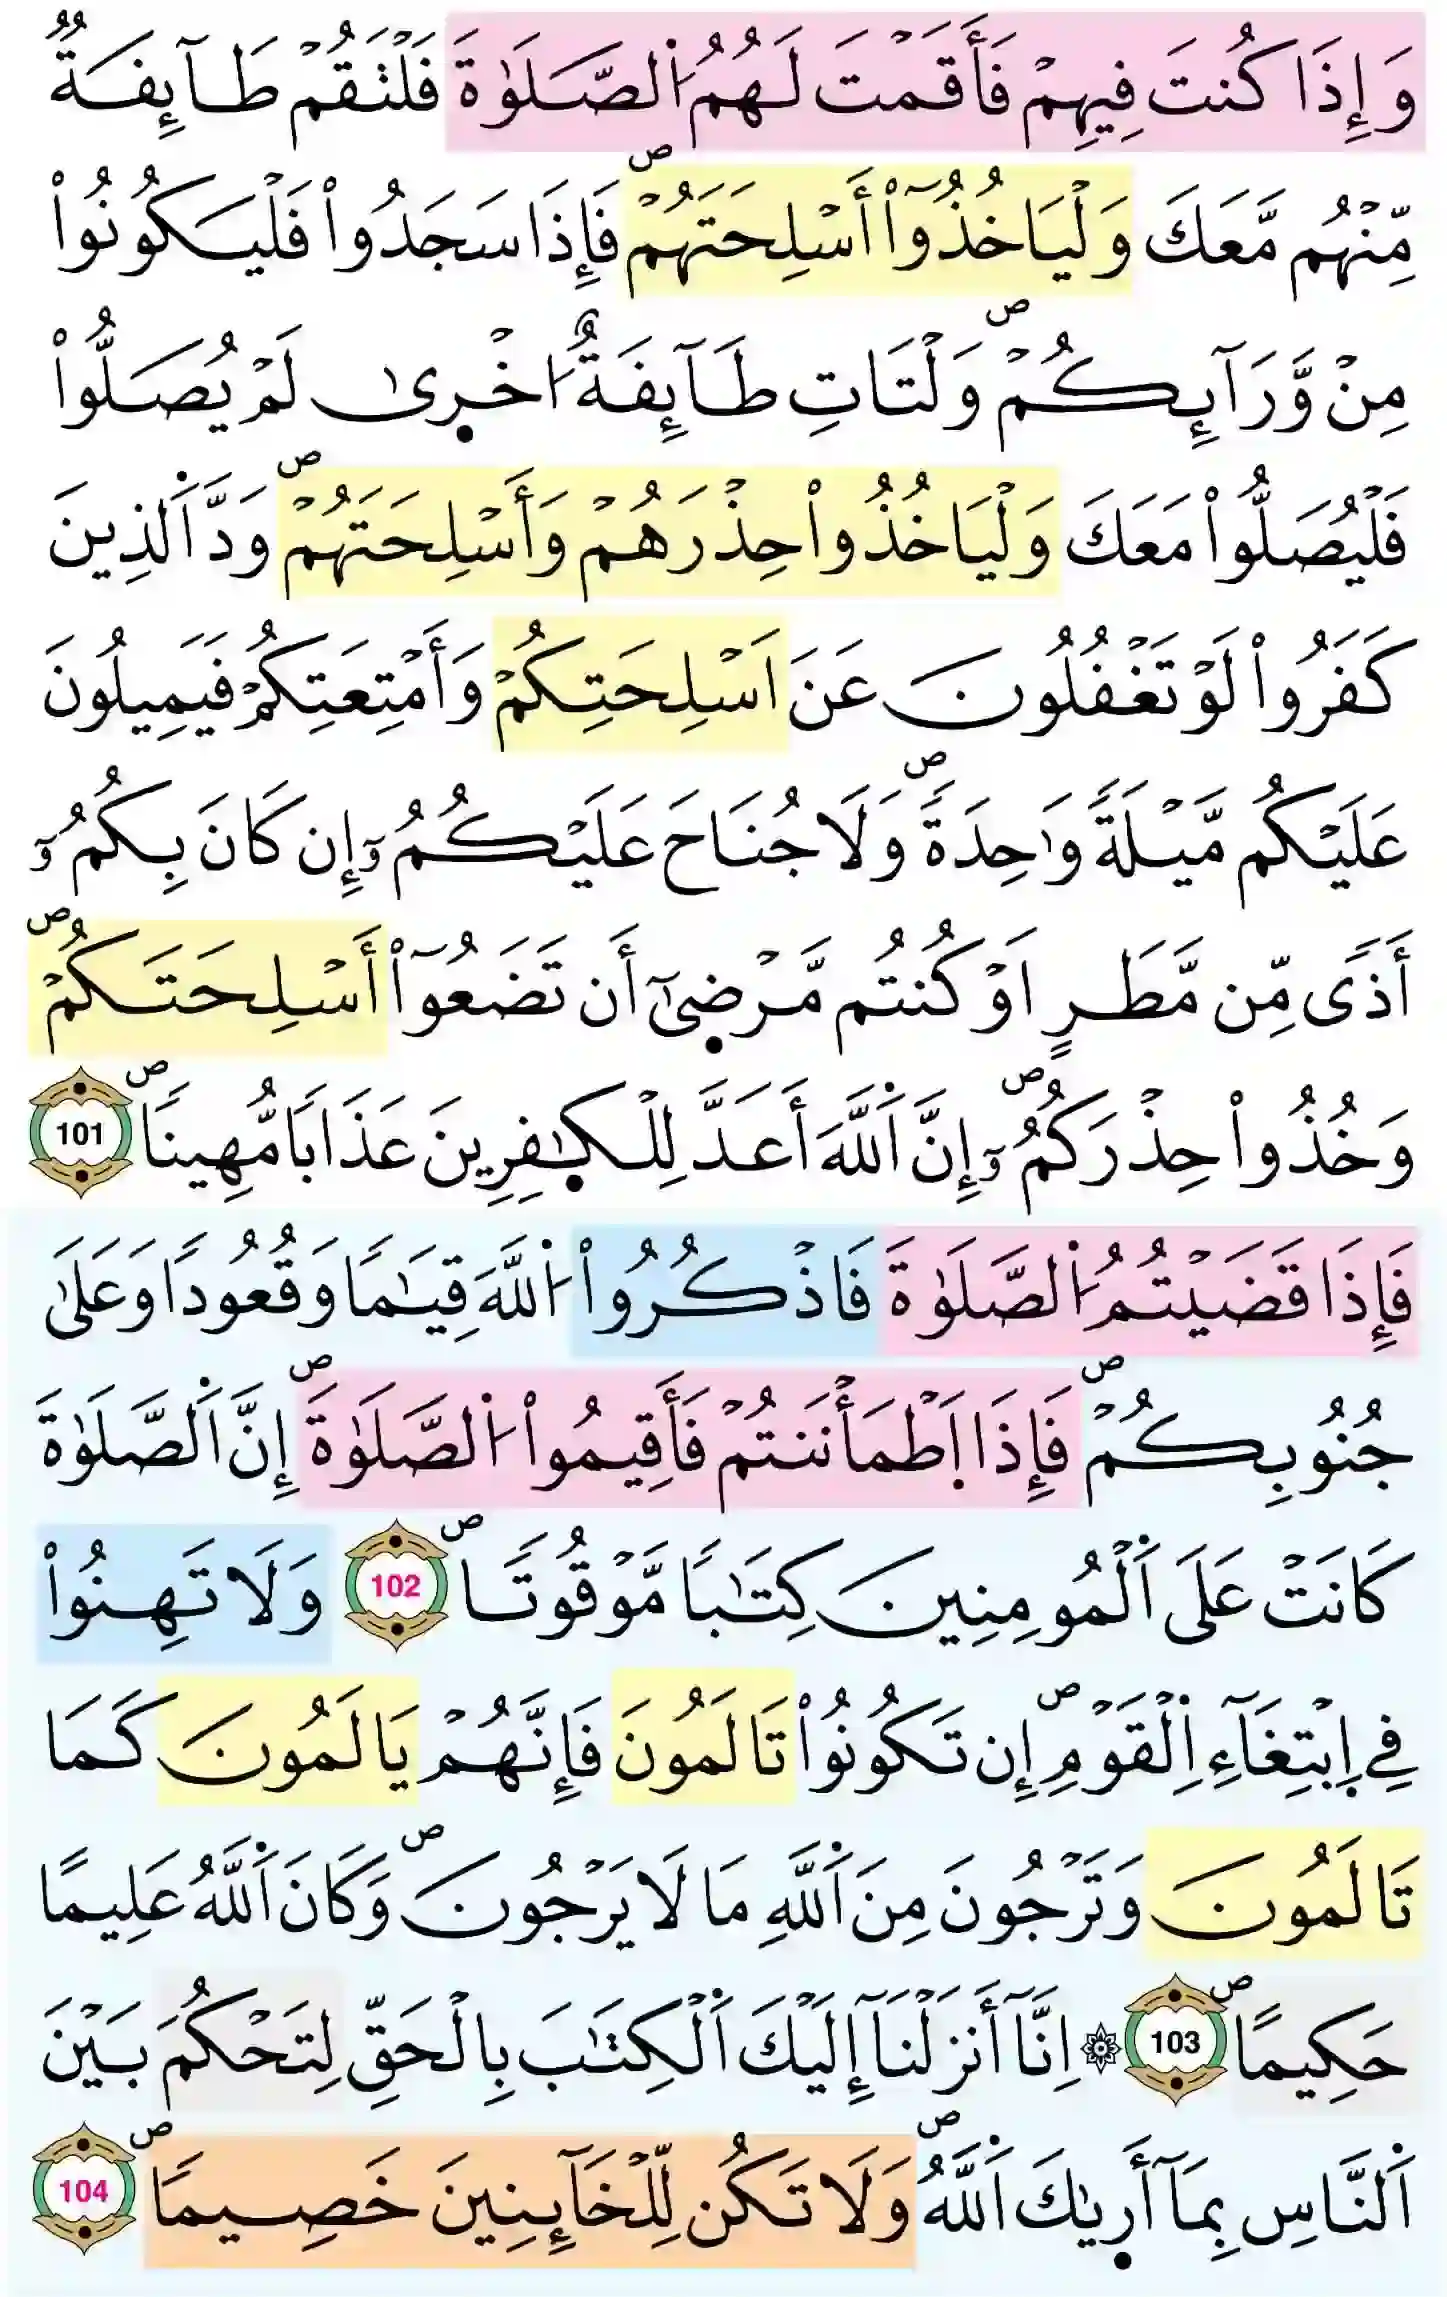 وَإِذَا كُنتَ فِيهِمْ فَأَقَمْتَ لَهُمُ اُ۬لصَّلَوٰةَ فَلْتَقُمْ طَآئِفَةٞ
مِّنْهُم مَّعَكَ وَلْيَاخُذُوٓاْ أَسْلِحَتَهُمْۖ فَإِذَا سَجَدُواْ فَلْيَكُونُواْ
مِنْ وَّرَآئِكُمْۖ وَلْتَاتِ طَآئِفَةٌ ا۟خْر۪يٰ لَمْ يُصَلُّواْ
فَلْيُصَلُّواْ مَعَكَ وَلْيَاخُذُواْ حِذْرَهُمْ وَأَسْلِحَتَهُمْۖ وَدَّ اَ۬لذِينَ
كَفَرُواْ لَوْ تَغْفُلُونَ عَنَ اَسْلِحَتِكُمْ وَأَمْتِعَتِكُمْ فَيَمِيلُونَ
عَلَيْكُم مَّيْلَةٗ وَٰحِدَةٗۖ وَلَا جُنَاحَ عَلَيْكُمُۥٓ إِن كَانَ بِكُمُۥٓ
أَذيٗ مِّن مَّطَرٍ اَوْ كُنتُم مَّرْض۪يٰٓ أَن تَضَعُوٓاْ أَسْلِحَتَكُمْۖ
وَخُذُواْ حِذْرَكُمُۥٓۖ إِنَّ اَ۬للَّهَ أَعَدَّ لِلْكٰ۪فِرِينَ عَذَاباٗ مُّهِيناٗۖ 101
فَإِذَا قَضَيْتُمُ اُ۬لصَّلَوٰةَ فَاذْكُرُواْ اُ۬للَّهَ قِيَٰماٗ وَقُعُوداٗ وَعَلَىٰ
جُنُوبِكُمْۖ فَإِذَا اَ۪طْمَأْنَنتُمْ فَأَقِيمُواْ اُ۬لصَّلَوٰةَۖ إِنَّ اَ۬لصَّلَوٰةَ
كَانَتْ عَلَى اَ۬لْمُومِنِينَ كِتَٰباٗ مَّوْقُوتاٗۖ 102 وَلَا تَهِنُواْ
فِي اِ۪بْتِغَآءِ اِ۬لْقَوْمِۖ إِن تَكُونُواْ تَالَمُونَ فَإِنَّهُمْ يَالَمُونَ كَمَا
تَالَمُونَ وَتَرْجُونَ مِنَ اَ۬للَّهِ مَا لَا يَرْجُونَۖ وَكَانَ اَ۬للَّهُ عَلِيماً
حَكِيماًۖ 103 ۞ اِنَّآ أَنزَلْنَآ إِلَيْكَ اَ۬لْكِتَٰبَ بِالْحَقِّ لِتَحْكُمَ بَيْنَ
اَ۬لنَّاسِ بِمَآ أَر۪يٰكَ اَ۬للَّهُۖ وَلَا تَكُن لِّلْخَآئِنِينَ خَصِيماٗۖ 104